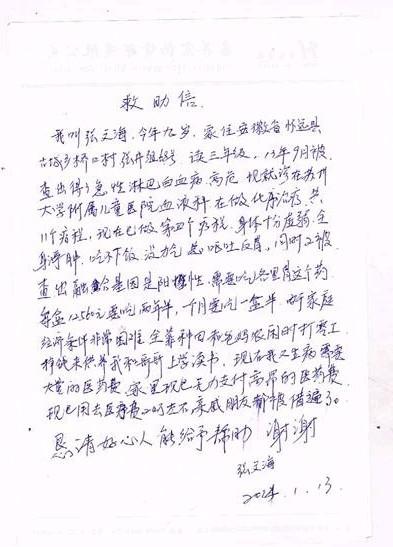 救助信
我叫张文海,今年九岁,家住安徽省怀远县
古城乡桥口村张井组 号 读三年级,13年9月被
查出得了急性淋巴白血病,高危 现就诊在苏州
大学附属儿童医院血液科 在做化疗治疗,共
11个疗程,现在已做第四个疗程,身体十分虚弱,全
身浮肿,吃不下饭,没力气 总呕吐反胃,同时又被
查出融合基因是阳性,需要吃 这个药
每盒12560元要吃两年半,一个月要吃一盒半 由于家庭
经济条件非常困难 全靠种田和爸妈农闲时打零工
挣钱来供养我和哥哥上学读书,现在我又生病需要
大量的医药费,家里现已无力支付高昂的医药费
现已用去医药费 亲戚朋友都被借遍了
恳请好心人能给予帮助 谢谢
张文海
2014.1.13